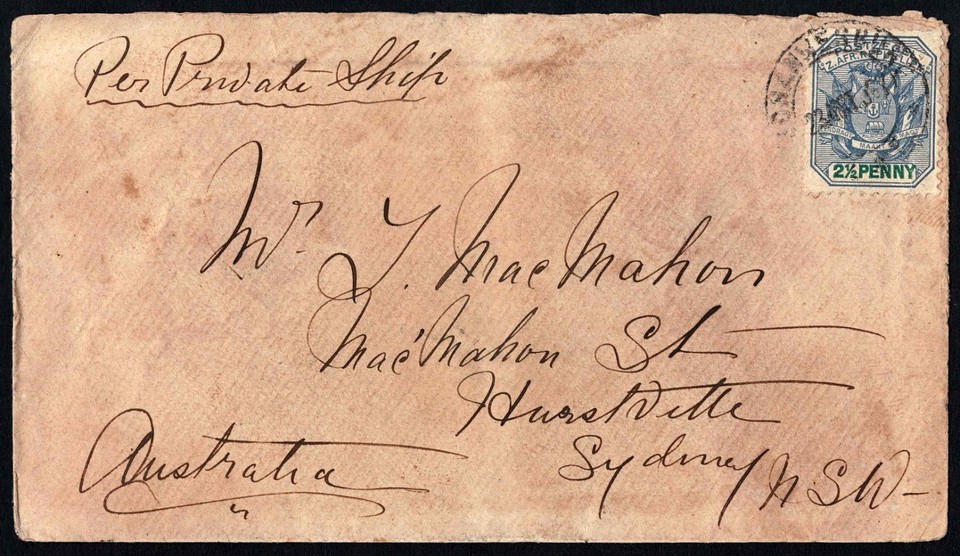 Per Private Ship
POSTZEGEL
Z. AFR. REPUBLIEK
EENDRAGT MAAKT MAGT
2½ PENNY
Mr. T. MacMahon
MacMahon St
Hurstville
Sydney NSW
Australia